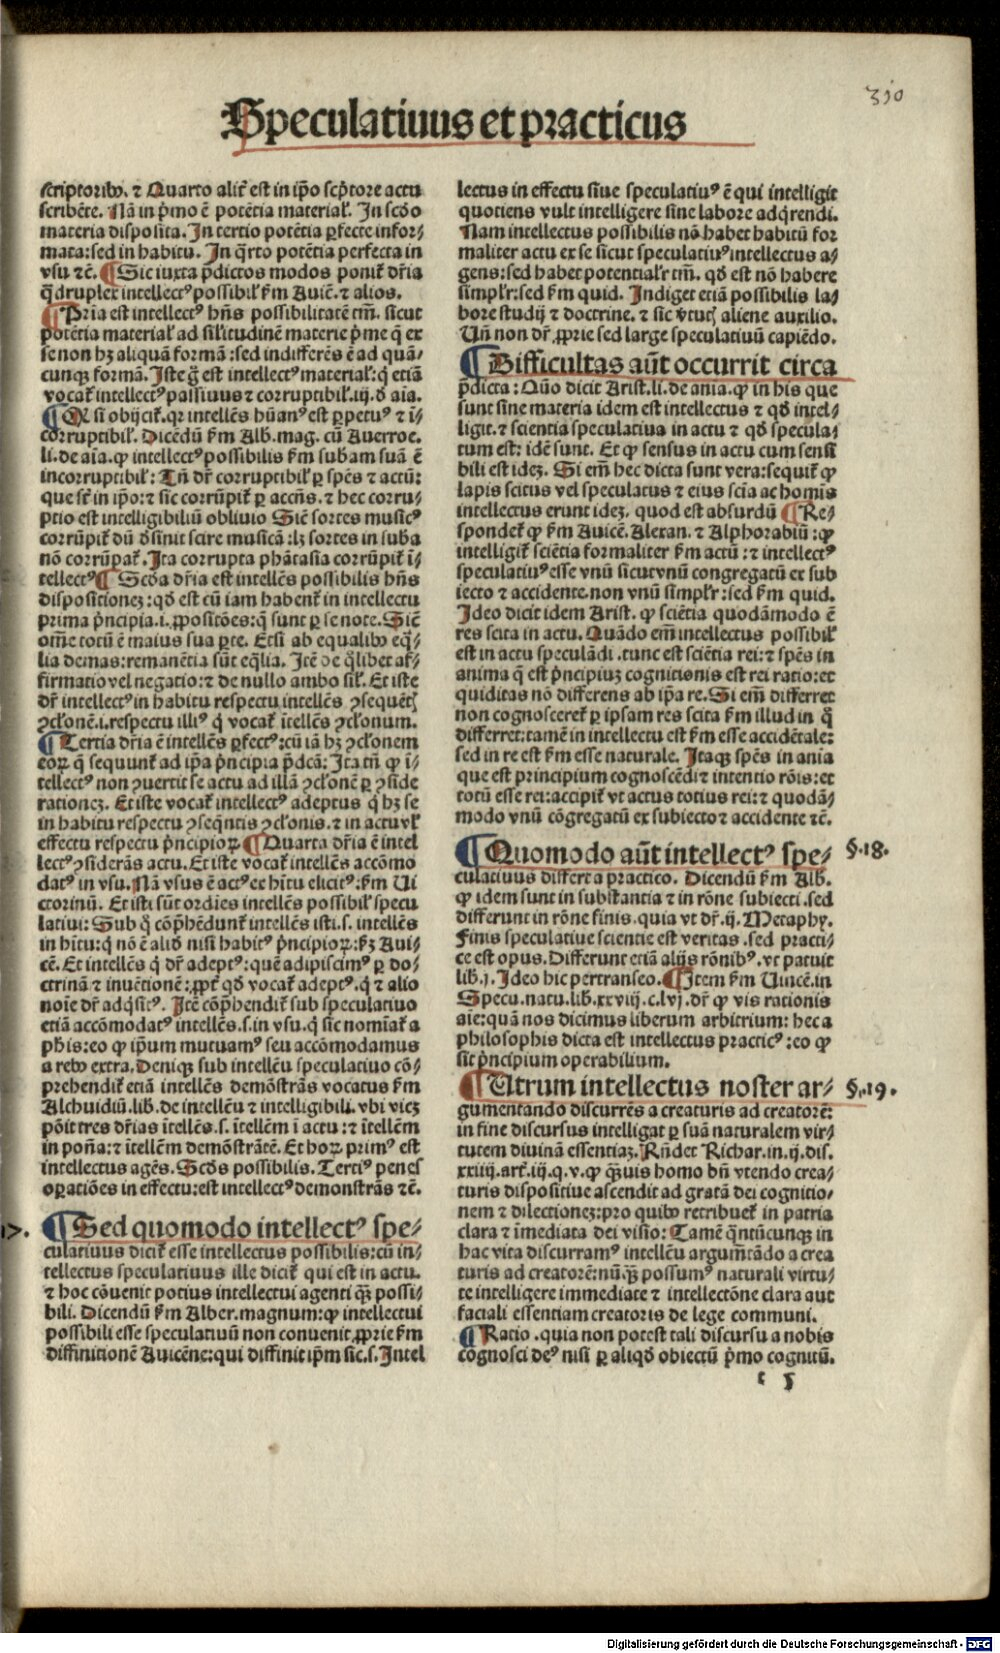 310
Speculatiuus et practicus
scriptoribꝰ. ⁊ Quarto aliť est in ip̄o scp̄tore actu
scribēte. Nā in p̄mo ē potētia material̕. In scd̄o
materia disposita. In tertio potētia ꝑfecte infor⸗
mata: sed in habitu. In q̄rto potētia perfecta in
vsu ⁊c̄. ¶ Sic iuxta p̄dictos modos poniť dr̄ia
q̄druplex intellectꝰ possibil̕ ẜm Auic̄. ⁊ alios.
¶ Pr̄ia est intellectꝰ hn̄s possibilitatē tm̄. sicut
potētia material̕ ad sil̕itudinē materie p̄me q̄ ex
se non hꝫ aliquā formā: sed indifferēs ē ad quā⸗
cunqꝫ formā. Iste g̊ est intellectꝰ material̕: q̄ etiā
vocať intellectꝰ passiuus ⁊ corruptibil̕. iij. đ aīa.
¶ Et si obijciť. qꝛ intellēs hūanꝰ est ꝑpetuꝰ ⁊ ī⸗
corruptibil̕. Dicēdū ẜm Alb. mag. cū Auerroe.
li. de aīa. ꝙ intellectꝰ possibilis ẜm subam̄ suā ē
incorruptibil̕: Tn̄ dr̄ corruptibil̕ ꝑ sp̄es ⁊ actū:
que sťr in ip̄o: ⁊ sic corrūpiť ꝑ accn̄s. ⁊ hec corru⸗
ptio est intelligibiliū obliuio Sic̄ sortes musicꝰ
corrūpiť dū đsinit scire musicā: lꝫ sortes in suba
nō corrūpať. Ita corrupta phātasia corrūpiť ī⸗
tellectꝰ ¶ Scd̄a dr̄ia est intellēs possibilis hn̄s
dispositionez: qđ est cū iam habenť in intellectu
prima p̄ncipia. i. ꝓpositōes: q̄ sunt ꝑ se note. Sic̄
om̄e totū ē maius sua ꝑte. Et si ab equalibꝰ eq̄⸗
lia demas: remanētia sūt eq̄lia. Itē de q̄libet af⸗
firmatio vel negatio: ⁊ de nullo ambo sil̕. Et iste
dr̄ intellectꝰ in habitu respectu intellēs ꝯsequētꝫ
ꝯcl̕onē. i. respectu illiꝰ q̄ vocať ītellēs ꝯcl̕onum.
¶ Tertia dr̄ia ē intellēs ꝑfectꝰ: cū iā hꝫ ꝯcl̕onem
eoꝝ q̄ sequunť ad ip̄a p̄ncipia p̄dcā: Ita tn̄ ꝙ ī⸗
tellectꝰ non ꝯuertit se actu ad illā ꝯcl̕onē ꝑ ꝯside
rationez. Et iste vocať intellectꝰ adeptus q̄ hꝫ se
in habitu respectu ꝯseq̄ntis ꝯcl̕onis. ⁊ in actu vl̕
effectu respectu p̄ncipioꝝ ¶ Quarta dr̄ia ē intel
lectꝰ ꝯsiderās actu. Et iste vocať intellēs accōmo
datꝰ in vsu. Nā vsus ē actꝰ ex hītu elicitꝰ: ẜm Ui
ctorinū. Et isti sūt ordies intellēs possibil̕ specu
latiui: Sub q̄ cōp̄hēdunť intellēs isti. s. intellēs
in hītu: q̄ nō ē aliđ nisi habitꝰ p̄ncipioꝝ: ẜꝫ Aui⸗
cē. Et intellēs q̄ dr̄ adeptꝰ: quē adipiscimꝰ ꝑ do⸗
ctrinā ⁊ inuētionē: ꝓpť qđ vocať adeptꝰ. q̄ ⁊ alio
noīe dr̄ adq̄sitꝰ. Itē cōp̄hendiť sub speculatiuo
etiā accōmodatꝰ intellēs. s. in vsu. q̄ sic nomīať a
ph̄is: eo ꝙ ip̄um mutuamꝰ seu accōmodamus
a rebꝰ extra. Deniqꝫ sub intellēu speculatiuo cō⸗
prehendiť etiā intellēs demōstrās vocatus ẜm
Alchuidiū. lib. de intellēu ⁊ intelligibili. vbi vicꝫ
pōit tres dr̄ias ītellēs. s. ītellēm ī actu: ⁊ ītellēm
in pōna: ⁊ ītellēm demōstrātē. Et hoꝝ primꝰ est
intellectus agēs. Scd̄s possibilis. Tertiꝰ penes
oꝑatiōes in effectu: est intellectꝰ demonstrās ⁊c̄.
17.
¶ Sed quomodo intellectꝰ spe⸗
culatiuus diciť esse intellectus possibilis: cū in⸗
tellectus speculatiuus ille diciť qui est in actu.
⁊ hoc cōuenit potius intellectui agenti q̄ꝫ possi⸗
bili. Dicendū ẜm Alber. magnum: ꝙ intellectui
possibili esse speculatiuū non conuenit ꝓprie ẜm
diffinitionē Auicēne: qui diffinit ip̄m sic. s. Intel
lectus in effectu siue speculatiuꝰ ē qui intelligit
quotiens vult intelligere sine labore adq̄rendi.
Nam intellectus possibilis nō habet habitū for
maliter actu ex se sicut speculatiuꝰ intellectus a⸗
gens: sed habet potential̕r tm̄. qđ est nō habere
simpl̕r: sed ẜm quid. Indiget etiā possibilis la⸗
bore studij ⁊ doctrine. ⁊ sic v̄tutꝫ aliene auxilio.
Un̄ non dr̄ ꝓprie sed large speculatiuū capiēdo.
¶ Difficultas aūt occurrit circa
p̄dicta: Quō dicit Arist. li. de anīa. ꝙ in his que
sunt sine materia idem est intellectus ⁊ qđ intel⸗
ligiť. ⁊ scientia speculatiua in actu ⁊ qđ specula⸗
tum est: idē sunt. Et ꝙ sensus in actu cum sensi
bili est idez. Si em̄ hec dicta sunt vera: sequiť ꝙ
lapis scitus vel speculatus ⁊ eius scīa ac homis
intellectus erunt idez. quod est absurdū ¶ Re⸗
spondeť ꝙ ẜm Auicē. Alexan. ⁊ Alphorabiū: ꝙ
intelligiť sciētia formaliter ẜm actū: ⁊ intellectꝰ
speculatiuꝰ esse vnū sicut vnū congregatū ex sub
iecto ⁊ accidente. non vnū simpl̕r: sed ẜm quid.
Ideo dicit idem Arist. ꝙ sciētia quodāmodo ē
res scita in actu. Quādo em̄ intellectus possibil̕
est in actu speculādi. tunc est sciētia rei: ⁊ sp̄es in
anima q̄ est p̄ncipiuꝫ cognitionis est rei ratio: et
quiditas nō differens ab ip̄a re. Si em̄ differret
non cognosceret̕ ꝑ ipsam res scita ẜm illud in q̄
differret: tamē in intellectu est ẜm esse accidētale:
sed in re est ẜm esse naturale. Itaqꝫ sp̄es in anīa
que est principium cognoscēdi ⁊ intentio rōis: et
totū esse rei: accipiť vt actus totius rei: ⁊ quodā⸗
modo vnū cōgregatū ex subiecto ⁊ accidente ⁊c̄.
¶ Quomodo aūt intellectꝰ spe⸗
§. 18.
culatiuus differt a practico. Dicendū ẜm Alb.
ꝙ idem sunt in substantia ⁊ in rōne subiecti. sed
differunt in rōne finis. quia vt dr̄. ij. Metaphy.
Finis speculatiue scientie est veritas. sed practi⸗
ce est opus. Differunt etiā alijs rōnibꝰ. vt patuit
lib. j. Ideo hic pertranseo. ¶ Item ẜm Uincē. in
Specu. natu. lib. xxviij. c. lvj. dr̄ ꝙ vis rationis
aīe: quā nos dicimus liberum arbitrium: hec a
philosophis dicta est intellectus practicꝰ: eo ꝙ
sit p̄ncipium operabilium.
¶ Utrum intellectus noster ar⸗
§. 19.
gumentando discurrēs a creaturis ad creatorē:
in fine discursus intelligat ꝑ suā naturalem vir⸗
tutem diuinā essentiaꝫ. Rn̄det Richar. in. ij. dis.
xxiiij. arť. iij. q. v. ꝙ q̄ꝫuis homo bn̄ vtendo crea⸗
turis dispositiue ascendit ad gratā dei cognitio⸗
nem ⁊ dilectionez: pro quibꝰ retribueť in patria
clara ⁊ īmediata dei visio: Tamē q̄ntūcunqꝫ in
hac vita discurramꝰ intellēu argum̄tādo a crea
turis ad creatorē: nūq̄ꝫ possumꝰ naturali virtu⸗
te intelligere immediate ⁊ intellectōne clara aut
faciali essentiam creatoris de lege communi.
¶ Ratio. quia non potest tali discursu a nobis
cognosci deꝰ nisi ꝑ aliqđ obiectū p̄mo cognitū.
t 5
Digitalisierung gefördert durch die Deutsche Forschungsgemeinschaft - DFG